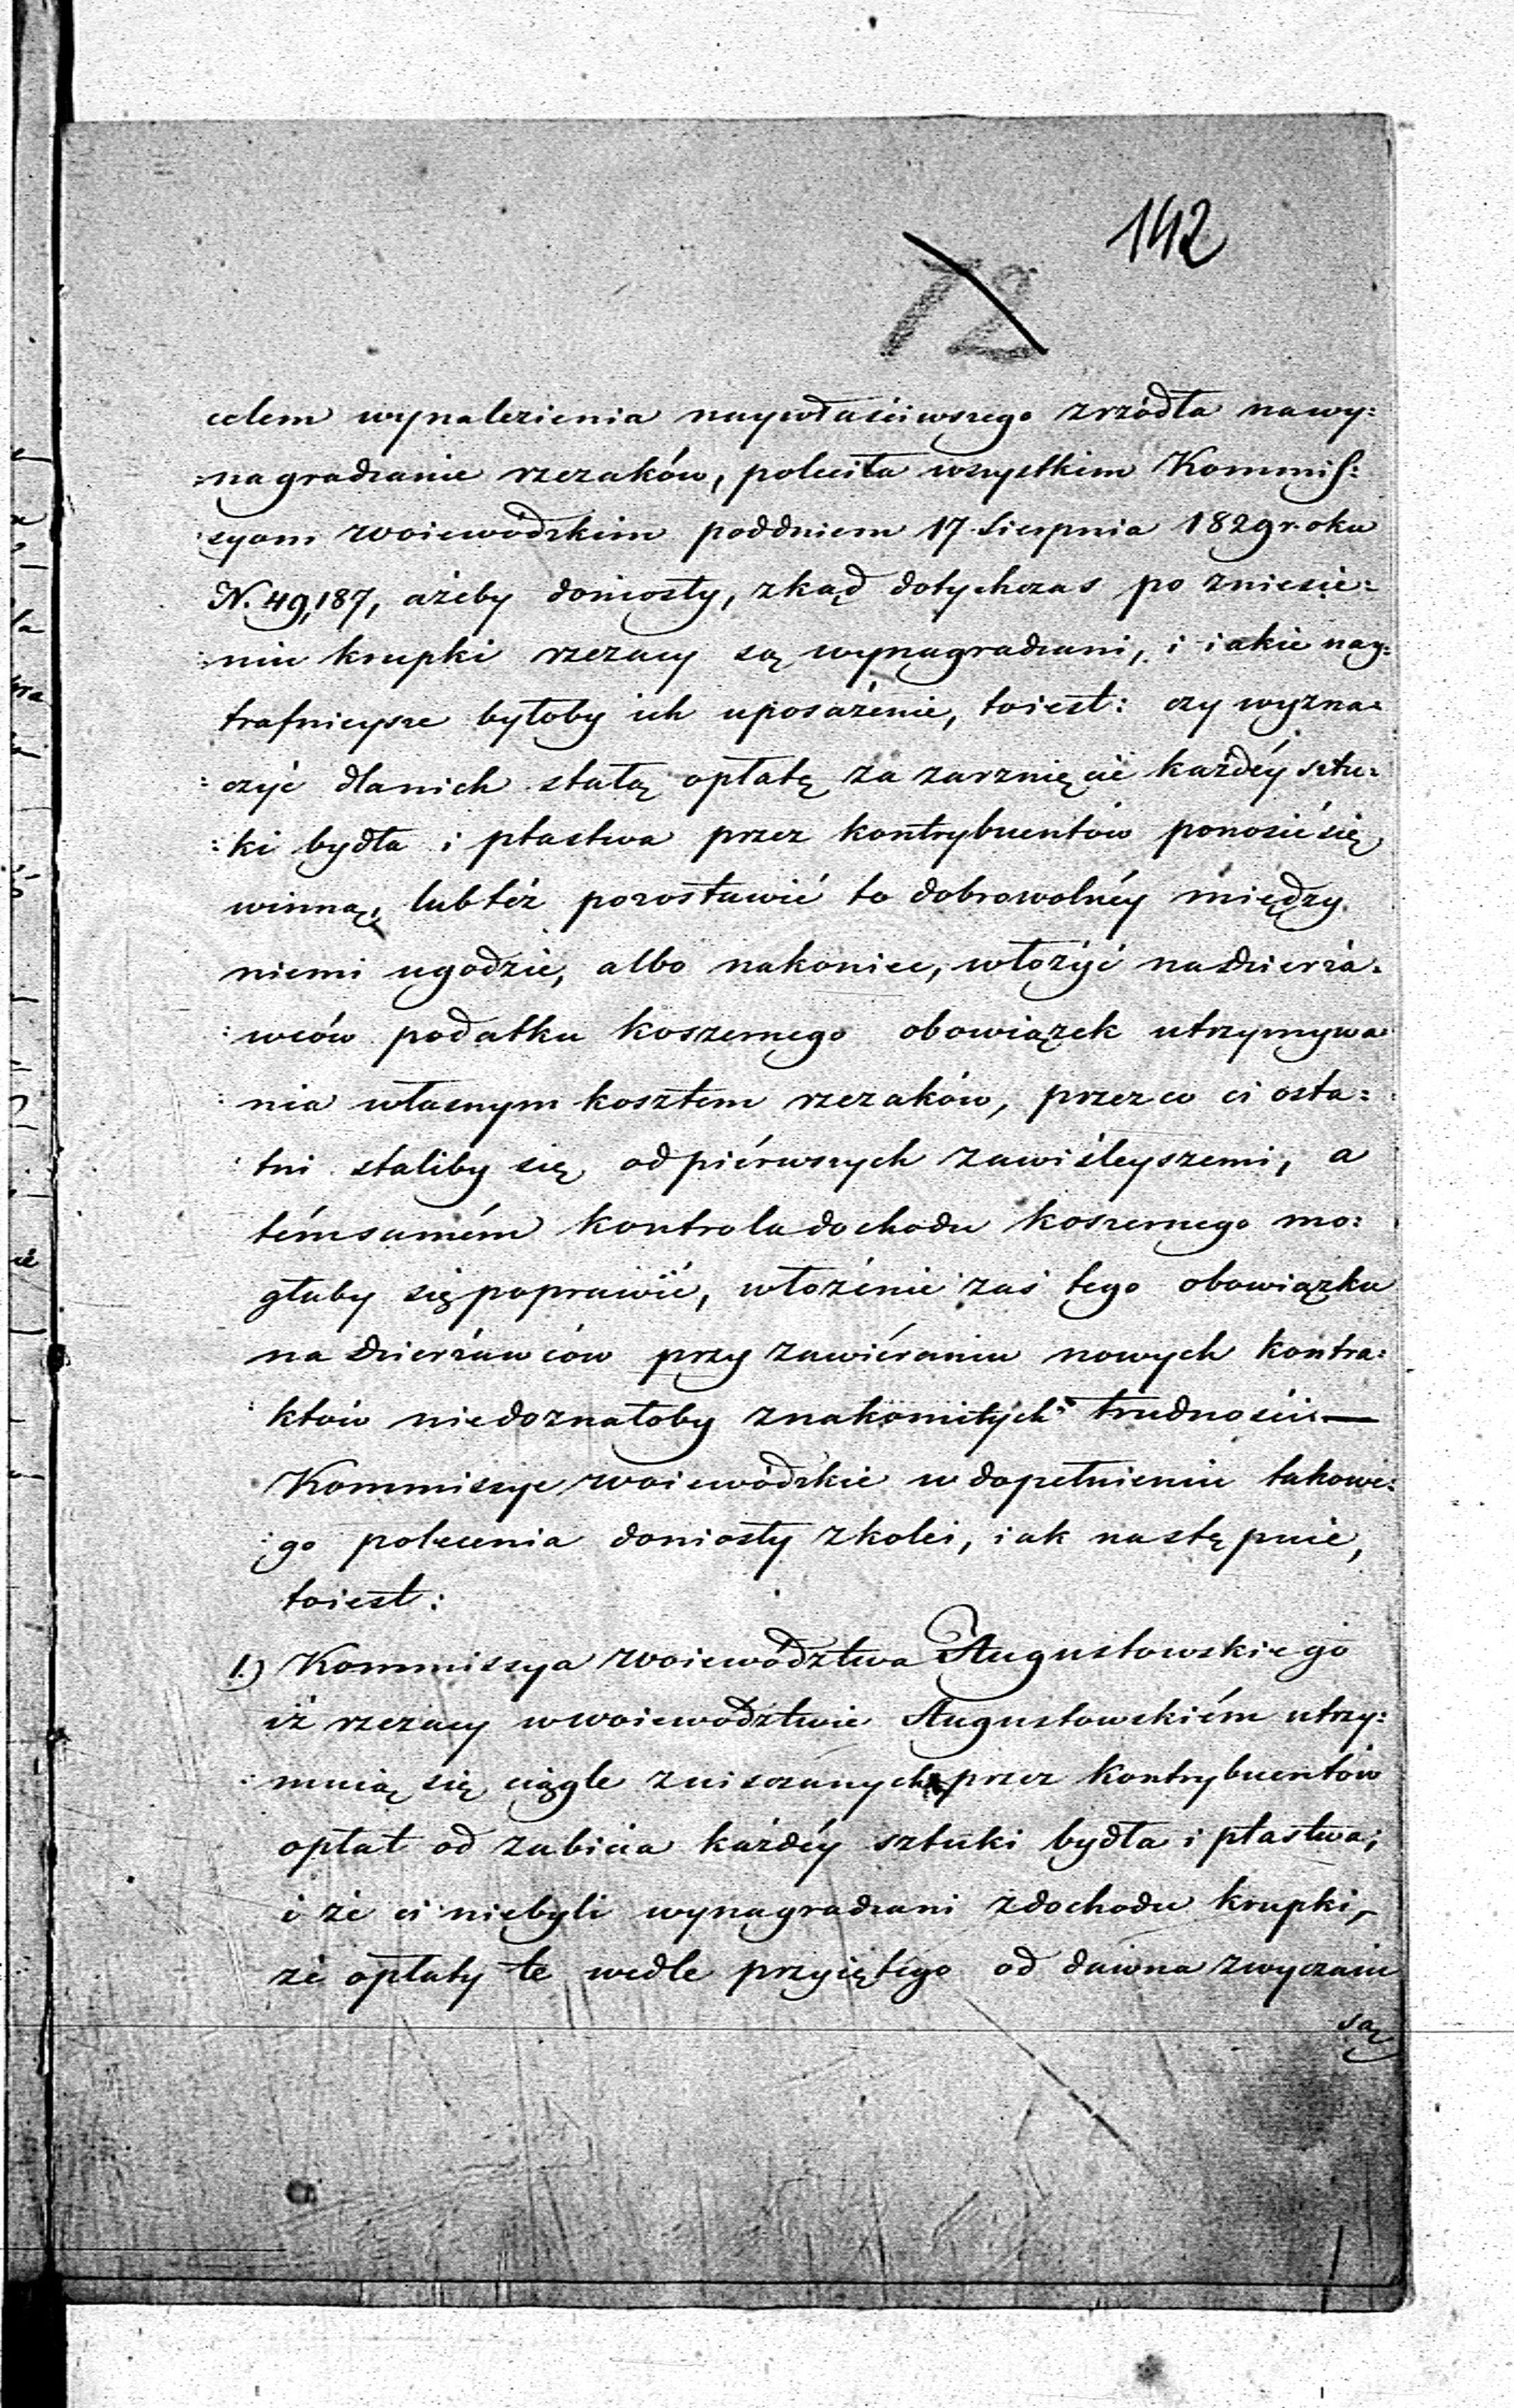 142
72
celem wynalezienia naywłaściwszego zrzódła nawy:
:nagradzanie rzezaków, poleciła wszystkim Kommis:
:syom woiewódzkim poddniem 17 Sierpnia 1829 roku
N. 49,187, ażeby doniosły, zkąd dotychczas po zniesie:
:niu krupki rzezacy są wynagradzani, i iakie nay:
trafnieysze byłoby ich uposażenie, toiest: czy wyzna:
:czyć dlanich stałą opłatę za zarznięcie każdéy sztu:
:ki bydła i ptastwa przez kontrybuentów ponosić się
winną, lubtéż pozostawić to dobrowolnéy między
niemi ugodzie, albo nakoniec, włożyć nadzierża:
:wców podatku koszernego obowiązek utrzymywa
:nia własnym kosztem rzezaków, przezco ci osta:
:tni staliby się odpiérwszych zawiśleyszemi, a
témsamém kontrola dochodu koszernego mo:
głaby się poprawić, włożenie zaś tego obowiązku
na dzierżawców przy zawiéraniu nowych kontra:
:któw niedoznałoby znakomitych trudności —
Kommissye woiewódzkie w dopełnieniu takowe:
:go polecenia doniosły zkolei, iak następuie,
toiest:
1.) Kommissya województwa Augustowskiego
iż rzezacy wwoiewództwie Augustowskiém utrzy:
:muią się ciągle zuiszczanych przez kontrybuentów
opłat od zabicia każdéy sztuki bydła i ptastwa;
i że ci niebyli wynagradzani zdochodu krupki,
że opłaty te wedle przyiętego od dawna zwyczaiu
są